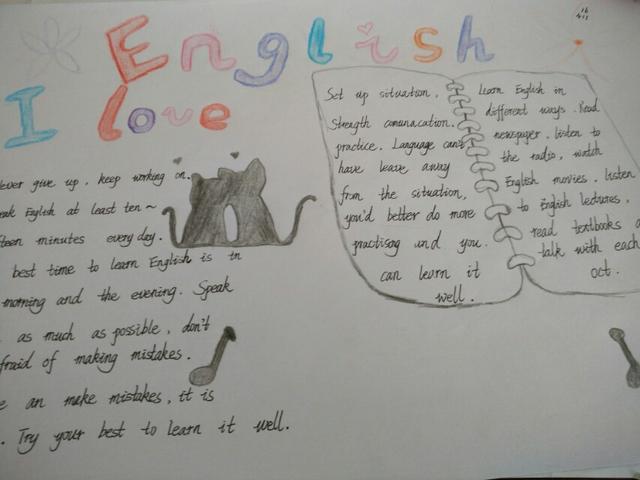 English
I love
Never give up, keep working on.
eak English at least ten~
fteen minutes every day.
best time to learn English is in
morning and the evening. Speak
as much as possible, don't
fraid of making mistakes.
e an make mistakes, it is
. Try your best to learn it well.
Set up situation,
Strength comunacation.
practice. Language can't
have leave away
from the situation,
you'd better do more
practisog and you
can learn it
well.
Learn English in
different ways. Read
newspaper, listen to
the radio, watch
English movies, listen
to English lectures,
read textbooks a
talk with each
oct.